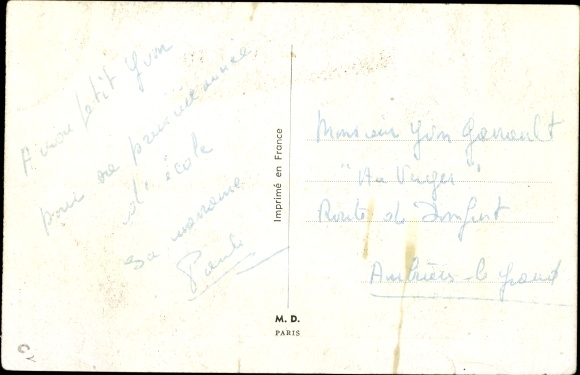 A mon petit Yvon
pour sa première année
d'école
sa marraine
Paule
Imprimé en France
M. D.
PARIS
Monsieur Yvon Garault
"Au Verger"
Route de Domfront
Ambrières-le-Grand